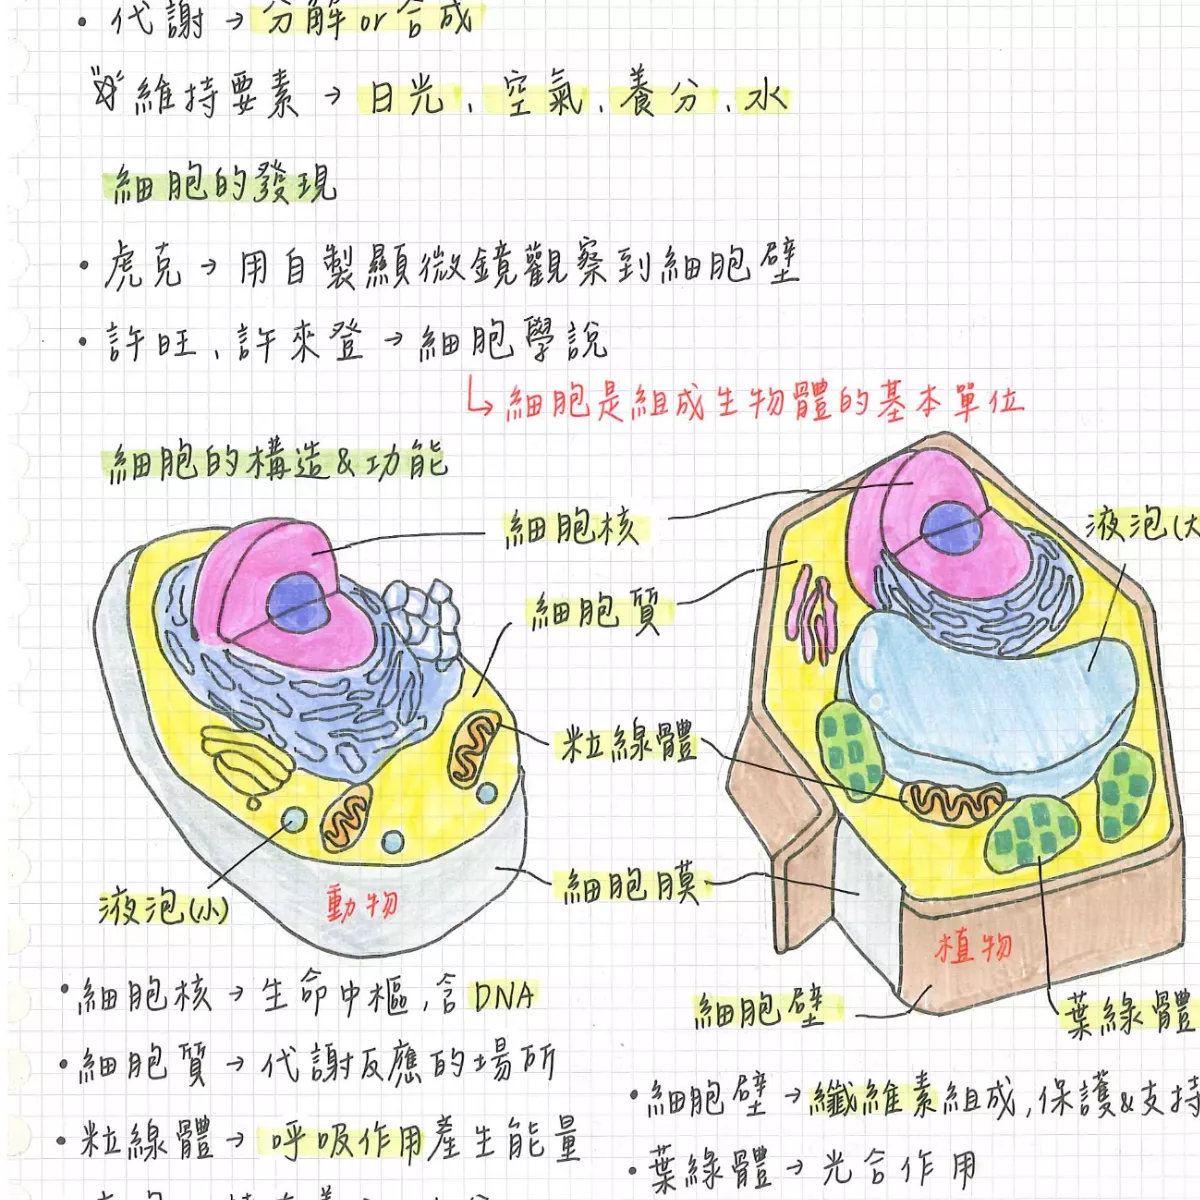 • 代謝→分解or合成
維持要素→日光、空氣、養分、水
細胞的發現
• 虎克→用自製顯微鏡觀察到細胞壁
• 許旺、許來登→細胞學說
細胞是組成生物體的基本單位
細胞的構造&功能
細胞核
液泡(大
細胞質
粒線體
細胞膜
液泡(小)
動物
植物
細胞壁
葉綠體
• 細胞核→生命中樞,含DNA
• 細胞質→代謝反應的場所
• 粒線體→呼吸作用產生能量
• 細胞壁→纖維素組成,保護&支持
• 葉綠體→光合作用